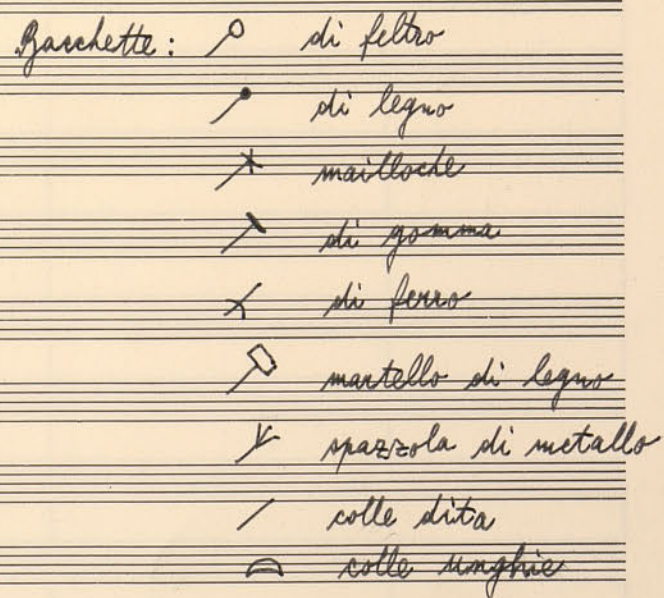 Bacchette: di feltro
di legno
mailloche
di gomma
di ferro
martello di legno
spazzola di metallo
colle dita
colle unghie